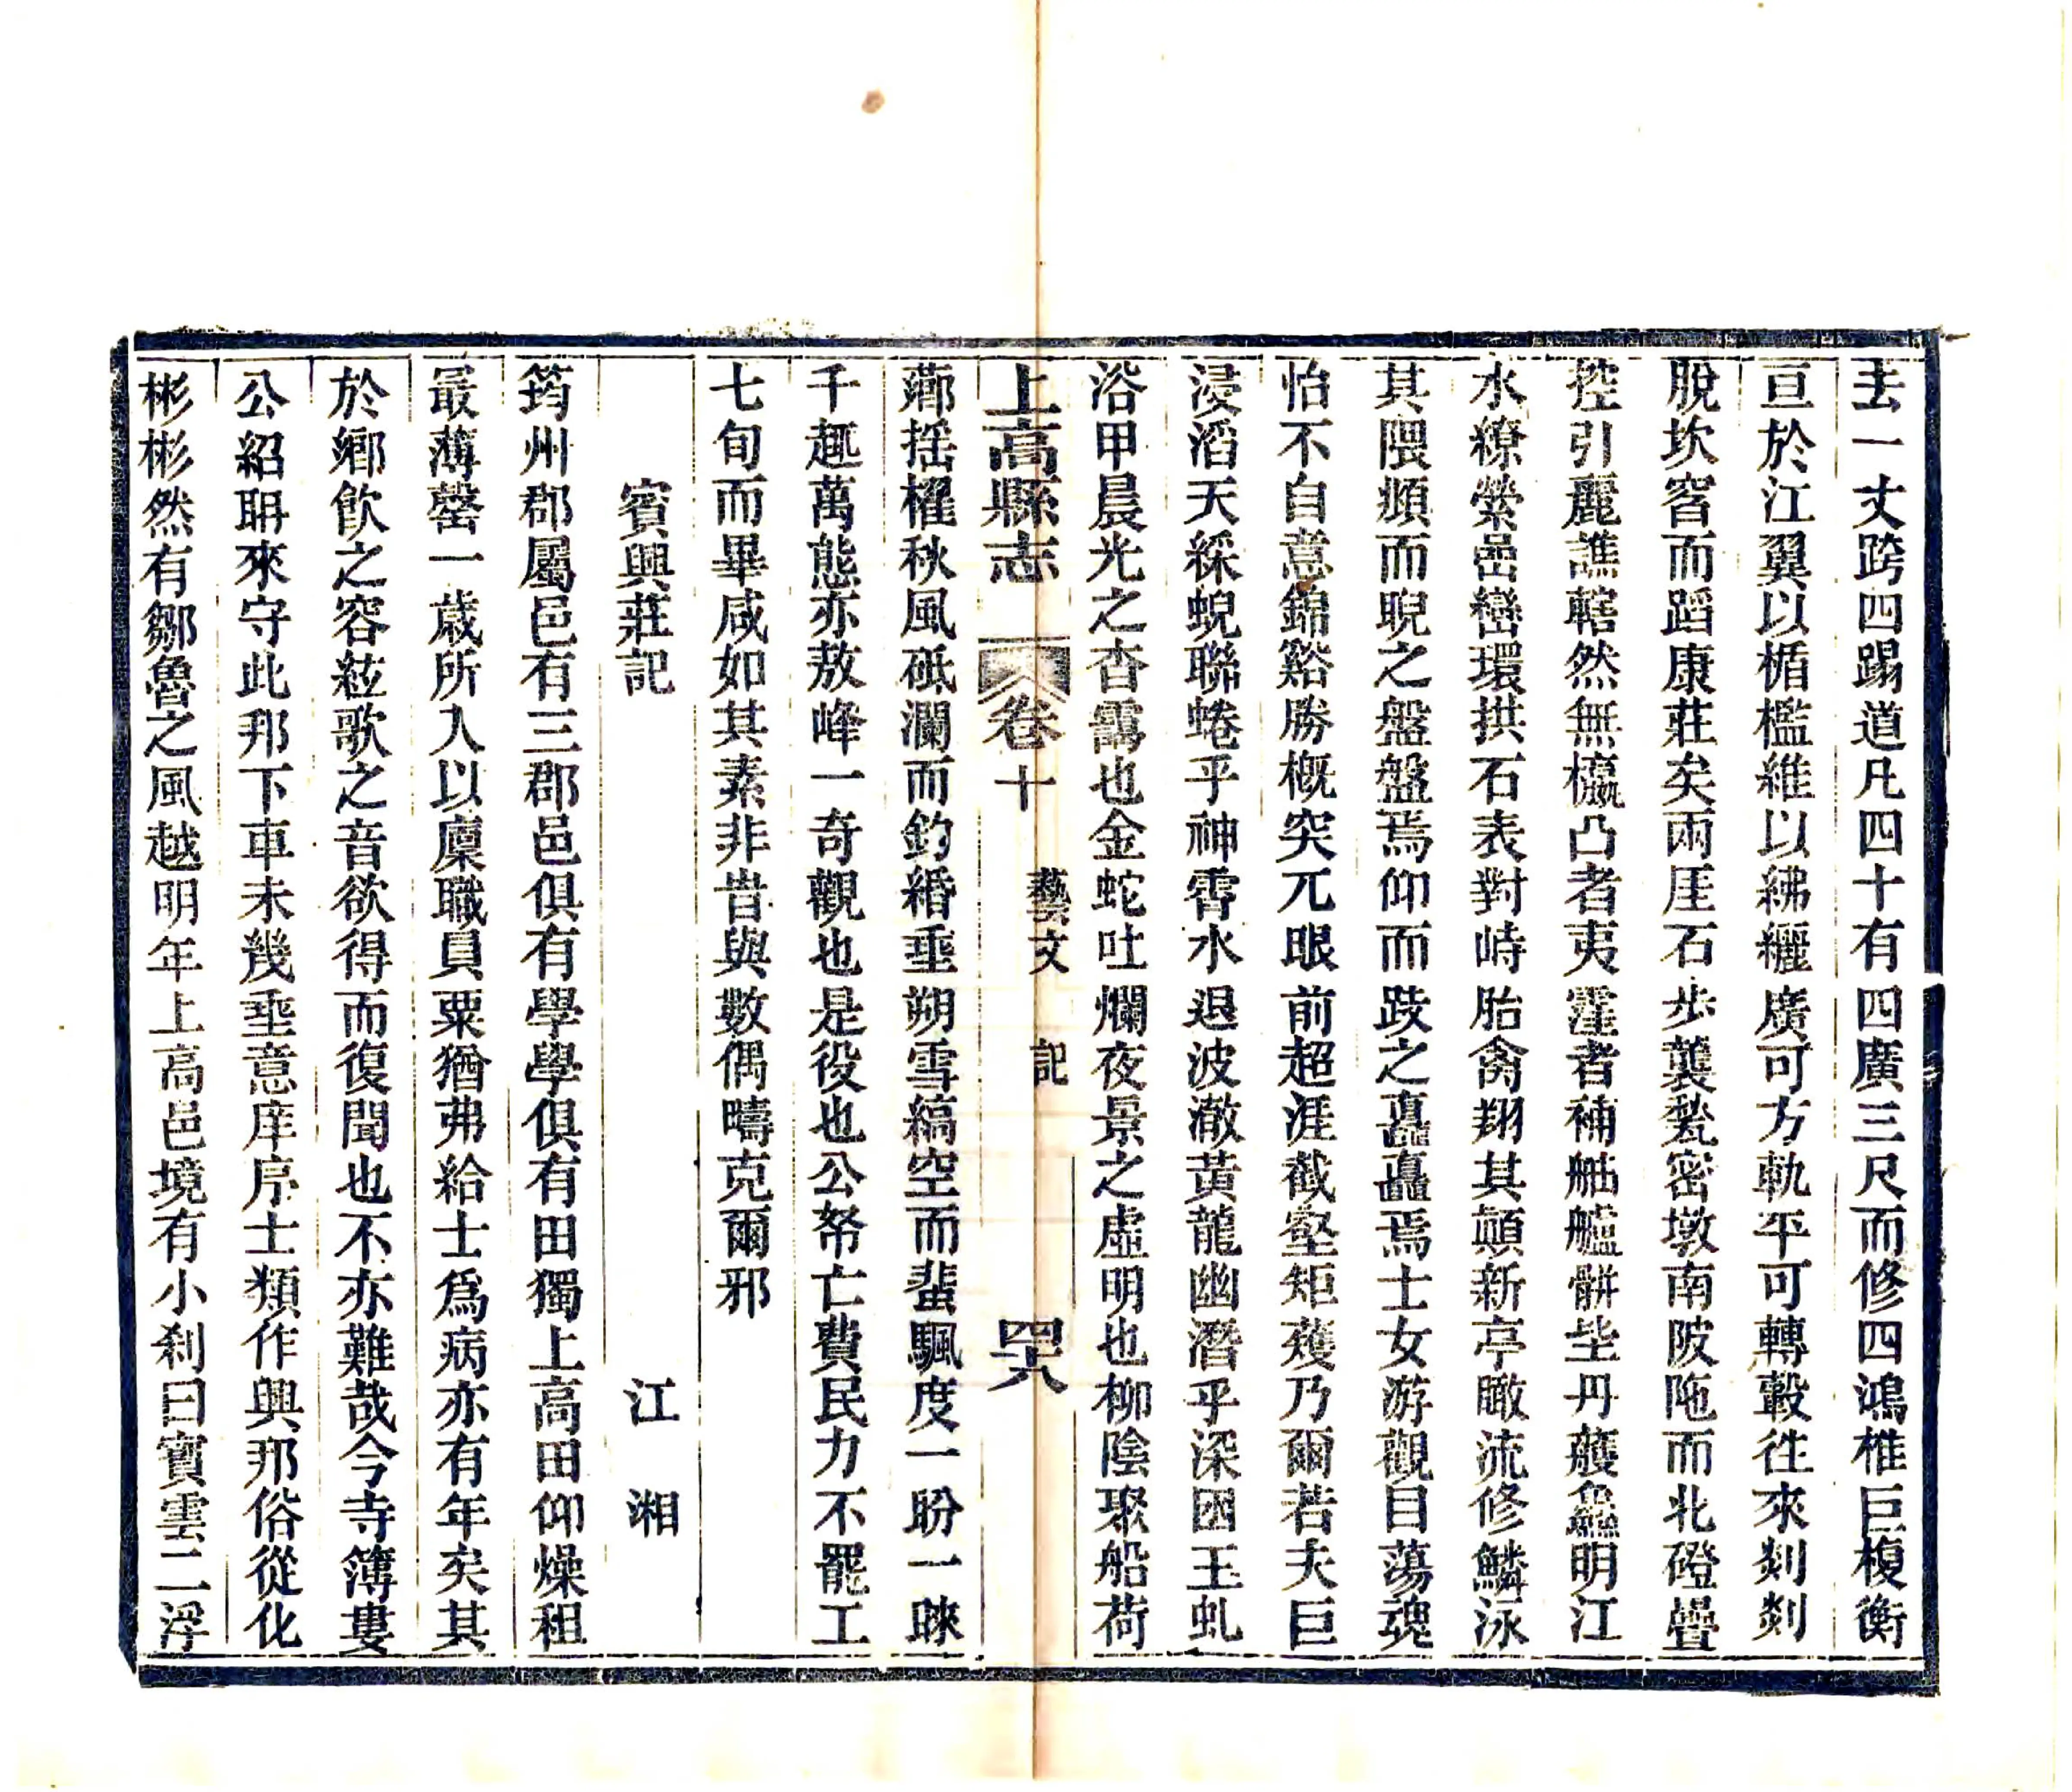 去一丈跨四踢道凡四十有四廣三尺而修四鴻椎巨椱衡
亘於江翼以楯檻維以紼纚廣可方軌平可轉轂徃來剡剡
脫坎窞而蹈康莊矣兩厓石步襲甃密墩南陂陁而北磴疊
控引麗譙轄然無櫼凸者夷窪者補舳艫骿坒丹艧鱻明江
水繚縈邑巒環拱石表對峙胎禽翔其顛新亭瞰流修鱗泳
其隈頫而睨之盤盤焉仰而跂之矗矗焉士女游觀目蕩魂
怡不自意錦谿勝概突兀眼前超涯截壑矩矱乃爾若夫巨
浸滔天綵蜺聯蜷乎神霄水退波澈黃龍幽潛乎深囦玉虬
浴甲晨光之杳靄也金蛇吐爛夜景之虛明也柳陰聚船荷
上高縣志
卷十
藝文
記
四八
薌揺櫂秋風砥瀾而釣緡垂朔雪縞空而蜚颿度一盼一睞
千趣萬態亦敖峰一奇觀也是役也公帑亡費民力不罷工
七旬而畢咸如其素非昔與數偶疇克爾邪
賓興莊記
江湘
筠州郡屬邑有三郡邑俱有學學俱有田獨上高田仰燥租
最薄罄一歳所入以廩職員粟猶弗給士爲病亦有年矣其
於鄉飮之容絃歌之音欲得而復聞也不亦難哉今寺簿婁
公紹聃來守此邦下車未幾垂意庠序士類作興邦俗從化
彬彬然有鄒魯之風越明年上高邑境有小刹曰寳雲二浮